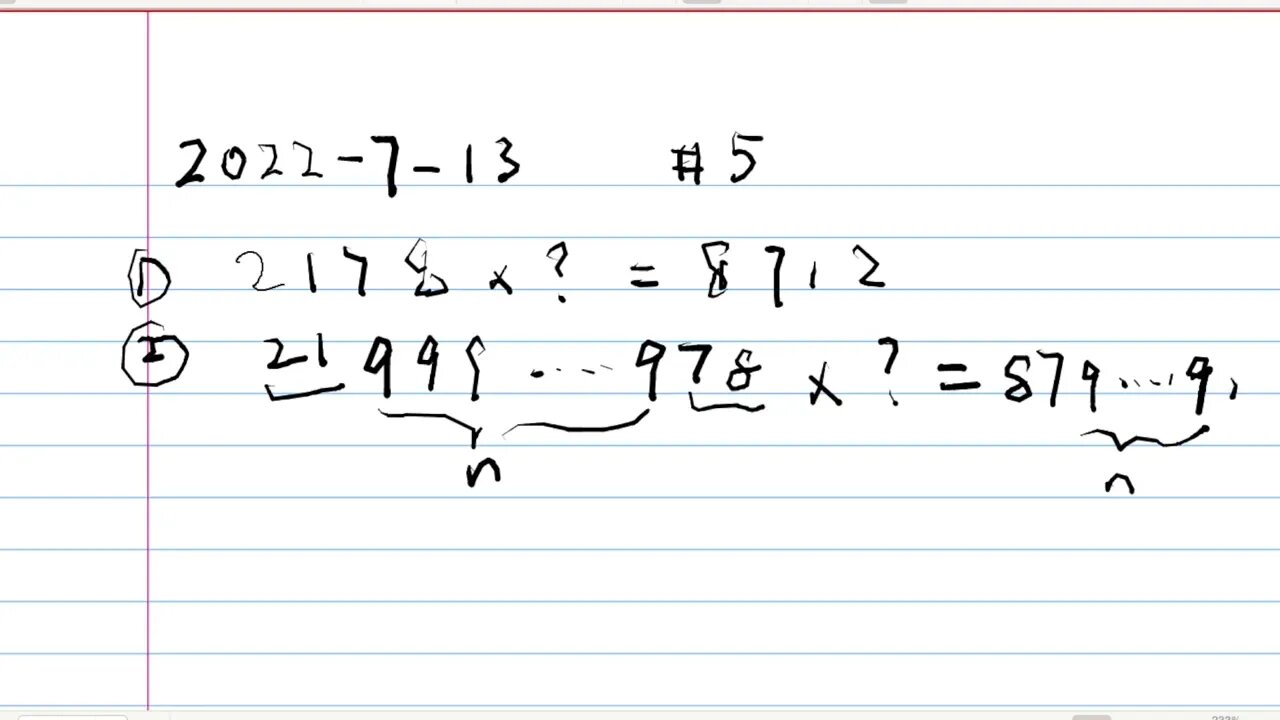 2022-7-13 #5
① 2178 × ? = 8712
② 21 999 ... 978 × ? = 879...9,
n n